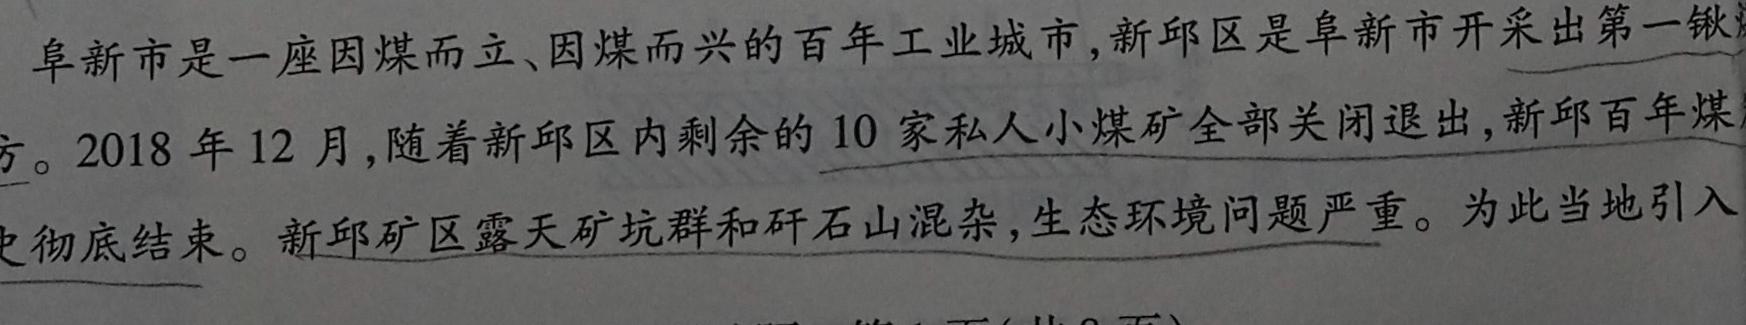 阜新市是一座因煤而立、因煤而兴的百年工业城市,新邱区是阜新市开采出第一锹
方。2018年12月,随着新邱区内剩余的10家私人小煤矿全部关闭退出,新邱百年煤
史彻底结束。新邱矿区露天矿坑群和矸石山混杂,生态环境问题严重。为此当地引入